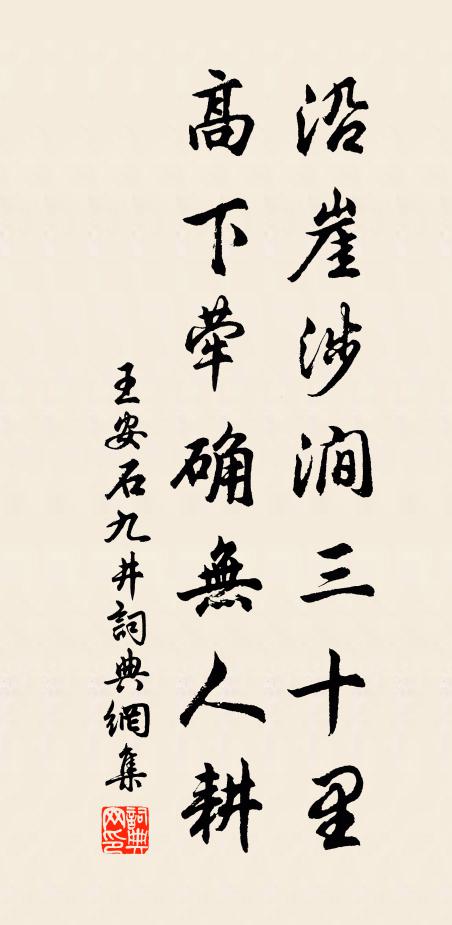 沿崖涉澗三十里
高下犖确無人耕
王安石九井詞典網集
詞典網印